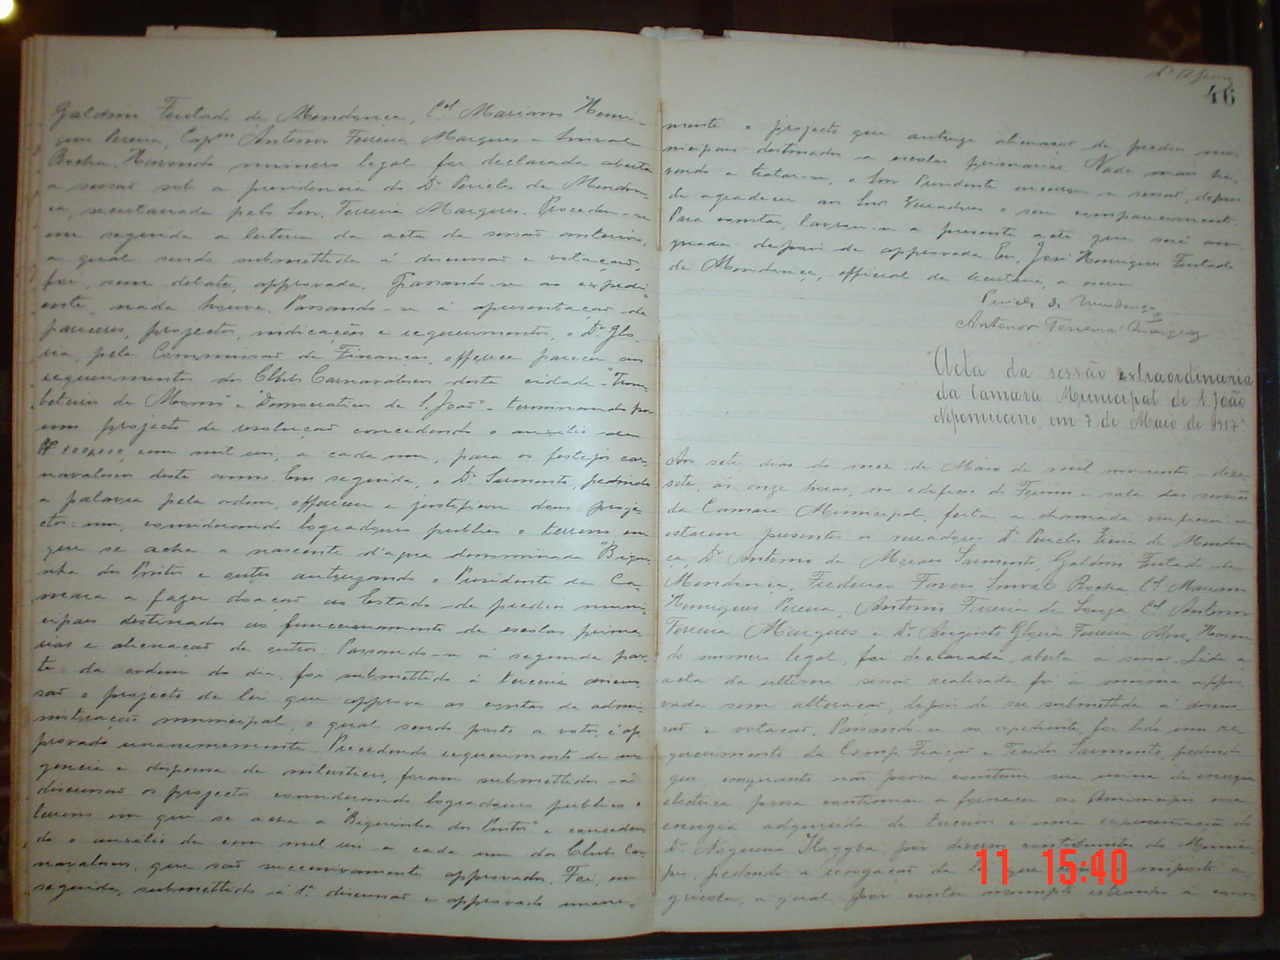 Galdino Furtado de Mendonça, Cel Mariano Henri-
ques Pereira, Capm Antenor Ferreira Marques e Sinval
Rocha. Havendo numero legal foi declarada aberta
a sessão sob a presidencia do Dr Pericles de Mendon-
ça, secretariada pelo Snr. Ferreira Marques. Procedeu-se
em seguida a leitura da acta da sessão anterior,
a qual sendo submettida á discussão e votação,
foi, sem debate, approvada. Passando-se ao expedi-
ente, nada houve. Passando-se á apresentação de
pareceres, projectos, indicações e requerimentos, o Dr Glo-
ria, pela Commissão de Finanças, offerece parecer aos
requerimentos dos Clubs Carnavalescos desta cidade "
de Momo" e "Democraticos de S. João" - terminando por
um projecto de resolução concedendo o auxilio de
100,000, cem mil reis, a cada um, para os festejos car-
navalescos deste anno. Em seguida, o Dr Sarmento, pedindo
a palavra pela ordem, offerece e justifica dous proje-
ctos: um, considerando logradouro publico o terreno em
que se acha a nascente d'agua denominada "Biqui-
nha dos Pintos" e outro autorizando o Presidente da Ca-
mara a fazer doação ao Estado de predios muni-
cipaes destinados ao funccionamento de escolas prima-
rias e alienação de outros. Passando-se á segunda par-
te da ordem do dia, foi submettido á terceira discus-
são o projecto de lei que approva as contas da admi-
nistração municipal, o qual sendo posto a votos, é ap-
provado unanimemente. Precedendo requerimento de ur-
gencia e dispensa de intersticio, foram submettidos á
discussão os projectos considerando logradouro publico o
terreno em que se acha a "Biquinha dos Pintos" e conceden-
do o auxilio de cem mil reis a cada um dos Clubs Car-
navalescos, que são successivamente approvados. Foi, em
seguida, submettido á 1ª discussão e approvado unani-
46
mente o projecto que autoriza alienação de predios mu-
nicipaes destinados a escolas primarias. Nada mais ha-
vendo a tratar-se, o Snr Presidente encerra a sessão, depois
de agradecer aos Snrs Vereadores o seu comparecimento.
Para constar, lavrou-se a presente acta que será assi-
gnada depois de approvada. Eu, José Henriques Furtado
de Mendonça, official da secretaria, a escrevi
Pericles de Mendonça
Antenor Ferreira Marques
Acta da sessão extraordinaria
da Camara Municipal de S. João
Nepomuceno, em 7 de Maio de 1917
Aos sete dias do mez de Maio de mil novecentos e deze-
sete, ás onze horas, no edificio do Forum e sala das sessões
da Camara Municipal, feita a chamada verificou-se
estarem presentes os vereadores Dr Pericles Vieira de Mendon-
ça, Dr Antonio de Moraes Sarmento, Galdino Furtado de
Mendonça, Frederico Sinval Rocha, Cel Mariano
Henriques Pereira, Antonio Ferreira de Souza, Cel Antenor
Ferreira Marques e Dr Augusto Gloria Ferreira Alves. Haven-
do numero legal, foi declarada aberta a sessão. Lida a
acta da ultima sessão realisada foi a mesma appro-
vada sem alteração, depois de ser submettida á discus-
são e votação. Passando-se ao expediente, foi lido um re-
querimento da Comp. Fiação e Tecidos Sarmento, pedindo
que, emquanto não possa construir sua usina de energia
electrica, possa continuar a fornecer ao Municipio essa
energia adquirida de terceiros e uma representação do
Dr Nogueira Itagyba, por diversos contribuintes do Munici-
pio, pedindo a revogação da lei que imposto a-
gricola, a qual, por conter assumpto extranho á
11 15:40